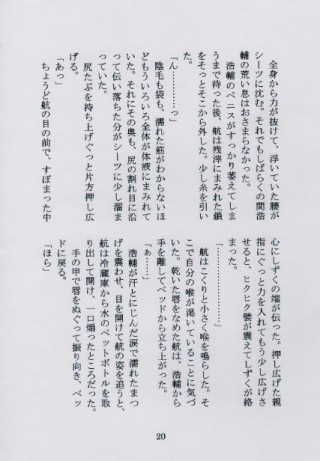 全身から力が抜けて、浮いていた腰が
シーツに沈む。それでもしばらくの間浩
輔の荒い息はおさまらなかった。
　浩輔のペニスがすっかり萎えてしま
うまで待った後、航は残滓にまみれた鎖
をそっとそこから外した。少し糸を引い
た。
「ん…………っ」
　陰毛も袋も、濡れた筋がわからないほ
どもういろいろ全体が体液にまみれて
いた。それにその奥も、尻の割れ目に沿
って伝い落ちた分がシーツに少し溜ま
っていた。
　尻たぶを持ち上げぐっと片方押し広
げる。
「あっ」
　ちょうど航の目の前で、すぼまった中
心にしずくの端が伝った。押し広げた親
指にぐっと力を入れてもう少し広げさ
せると、ヒクヒク襞が震えてしずくが絡
まった。
「…………」
　航はこくりと小さく喉を鳴らした。そ
こで自分の喉が渇いていることに気づ
いた。乾いた唇をなめた航は、浩輔から
手を離してベッドから立ち上がった。
「ぁ……」
　浩輔が汗とにじんだ涙で濡れたまつ
げを震わせ、目を開けて航の姿を追うと、
航は冷蔵庫から水のペットボトルを取
り出して開け、一口煽ったところだった。
手の甲で唇をぬぐって振り向き、ベッ
ドに戻る。
「ほら」
20